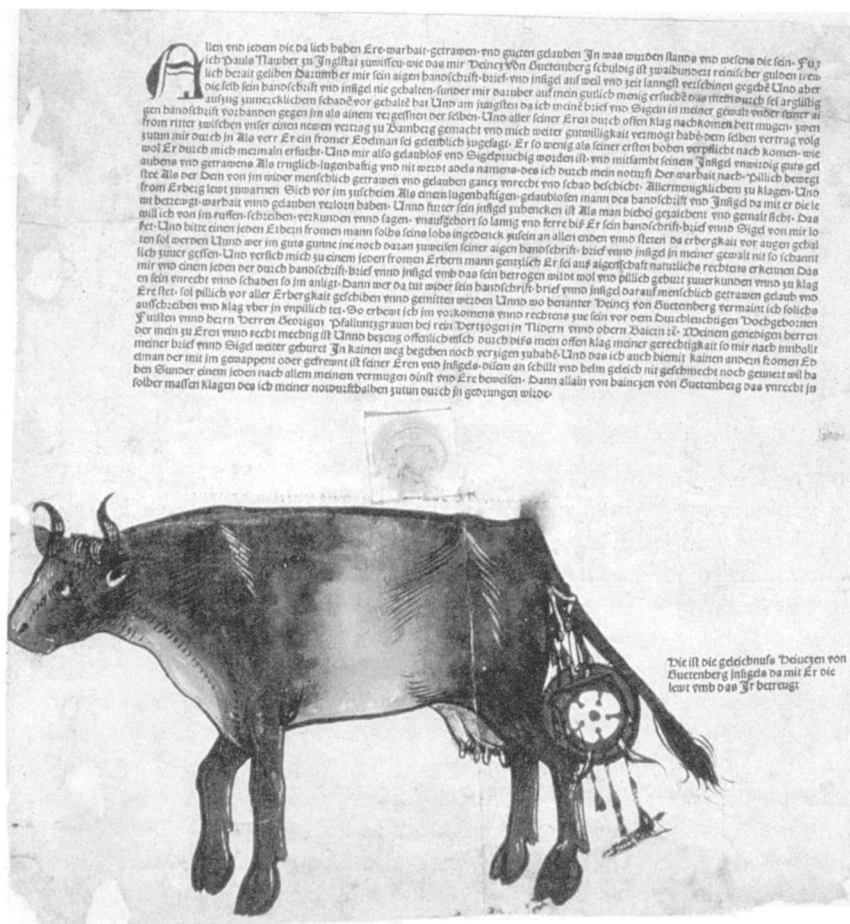 Allen vnd jedem die da lieb haben Ere·warhait·getrawen·vnd guten gelauben Jn was wurden stands vnd wesens die sein· Fuz
ich Pauls Nawber zu Jnglstat zuwissen·wie das mir Heincz von Guetenberg schuldig ist zwaihundert reinischer gulden
lich berait gelihen Darumb er mir sein aigen handschrift·brief·vnd jnsigel auf weil vnd zeit lanngst verschinen gegebē Vnd aber
die selb sein handschrift vnd jnsigel nie gehalten·sunder mir darüber auf mein gutlich menig ersuchē das mein durch sel arglistig
aufzug zumercklichem schadē vor gehaltē hat Und am jungsten da ich meinē brief vnd Sigeln in meiner gewalt vnder seiner ai
gen handschrift vorhanden gegen jm als ainem vergessnen der selben·Vnd aller seiner Eren durch offen klag nachkomen hett mugen· zwen
from ritter zwischen vnser einen newen vertrag zu Bamberg gemacht vnd mich weiter gutwilligkait vermogt habē dem selben vertrag volg
zutun mir durch jn Als verr Er ein fromer Edelman sei geleublich zugesagt· Er so wenig als seiner ersten hohen verpflicht nach komen· wie
wol Er durch mich mermaln ersucht·Vnd mir also gelaublos vnd Sigelpruchig worden ist·vnd mitsambt seinem Jnsigl vnwirdig guts gel
aubens vnd getrawens Als truglich·lugenhaftig vnd nit werdt adels namens·des ich durch mein notturft Der warhait nach·Pillich bewegt
stee Als der Dem von jm wider menschlich getrawen vnd gelauben gancz vnrecht vnd schad beschicht· Allermenigklichem zu klagen·Vnd
from Erberg lewt zuwarnen Sich vor jm zufcheien Als einem lugenhaftigen·gelaublosen mann des handschrift vnd Jnsigl da mit er die le
wt betrewgt·warhait vnnd gelauben verlorn haben· Unnd furter sein jnsigel zubencken ist Als man hiebei gezaichent vnd gemalt sicht· Das
will ich von jm ruffen·schreiben·verkunden vnnd sagen· vnaufgehort so lanng vnd ferre biß Er sein handschrift·brief vnnd Sigel von mir lo
set·Vnd bitte einen jeden Erbern fromen mann solhs seins lobs ingedenck zusein an allen enden vnnd steten da erbergkait vor augen gehal
ten sol werden Unnd wer im guts gunne jne noch daran zuweisen seiner aigen handschrift· brief vnnd jnsigel in meiner gewalt nit so schannt
lich zuuer gessen· Vnd versich mich zu einem jeden fromen Erbern mann genczlich Er sei auf aigenschaft naturlichs rechtens erkennen Das
mir vnd einem jeden der durch handschrift·brief vnnd jnsigel vmb das sein betrogen wirdt wol vnd pillich geburt zuuerkunden vnnd zu klag
en sein vnrecht vnnd schaden so jm anligt·Dann wer da tut wider sein handschrift·brief vnnd jnsigel darauf menschlich getrawen gelaub vnd
Ere stet· sol pillich vor aller Erbergkait geschihen vnnd gemitten werden Unnd wo benanter Heincz von Guettenberg vermaint ich solichs
ausschreiben vnd klag vber jn vnpillich tet·So erbewt ich jm vorkomens vnnd rechtens zue sein vor dem Durchleuchtigen Hochgebornen
Fursten vnnd herrn Herren Georigen Pfallnntzgrauen bei rein Hertzogen jn Nidern vnnd obern Baiern ꝛc̄· Meinem genedigen herren
der mein zu Eren vnnd recht mechtig ist Unnd bezeug offenlichen durch dise mein offen klag meiner gerechtigkait so mir nach innhallt
meiner brief vnnd Sigel weiter geburet Jn kainen weg begeben noch verzigen zuhabē·Vnd das ich auch hiemit kainen andern fromen Ed
elman der mit jm gewappent oder gefrewnt ist seiner Eren vnd jnsigels·disem an schillt vnd helm geleich nit geschmecht noch geunert wil ha
ben Sunder einem jeden nach allem meinem vermugen dinst vnd Ere beweisen· Dann allain von hainczen von Guetenberg das vnrecht jn
solher massen klagen des ich meiner notturfthalben zutun durch jn gedrungen wirde·
Die ist die geleichnuss Heinczen von
Guetenberg jnsigels da mit Er die
lewt vmb das Jr betreugt